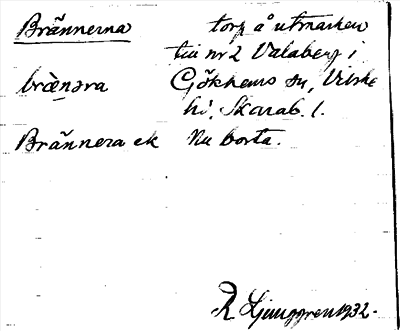 Brännerna torp å utmarken
till nr 2 Valaberg i
bræ̀nəra Gökhems sn, Vilske
hd, Skarab. l.
Brännera ek Nu borta.
R Ljunggren 1932.